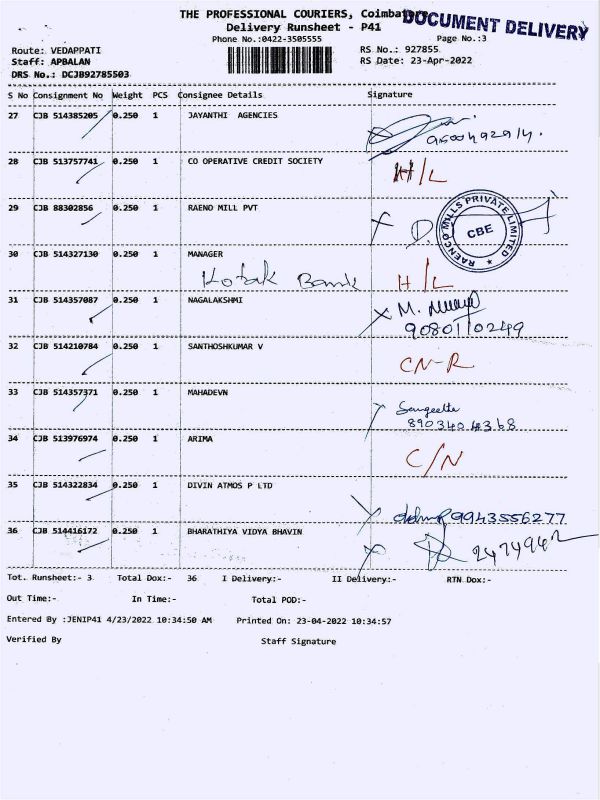 THE PROFESSIONAL COURIERS, Coimbatore
DOCUMENT DELIVERY
Delivery Runsheet - P41
Phone No.:0422-3505555
Page No.:3
Route: VEDAPPATI
RS No.: 927855
Staff: APBALAN
RS Date: 23-Apr-2022
DRS No.: DCJB92785503
S No Consignment No Weight PCS Consignee Details Signature
27 CJB 514385205 0.250 1 JAYANTHI AGENCIES
28 CJB 513757741 0.250 1 CO OPERATIVE CREDIT SOCIETY H/L
29 CJB 88302856 0.250 1 RAENO MILL PVT
RAENCO MILLS PRIVATE LIMITED
CBE
30 CJB 514327130 0.250 1 MANAGER
Kotak Bank H/L
31 CJB 514357087 0.250 1 NAGALAKSHMI M.
9080110249
32 CJB 514210784 0.250 1 SANTHOSHKUMAR V
CN-R
33 CJB 514357371 0.250 1 MAHADEVN
Sangeetha
8903404368
34 CJB 513976974 0.250 1 ARIMA
C/N
35 CJB 514322834 0.250 1 DIVIN ATMOS P LTD
9943556277
36 CJB 514416172 0.250 1 BHARATHIYA VIDYA BHAVIN
2474942
Tot. Runsheet:- 3 Total Dox:- 36 I Delivery:- II Delivery:- RTN Dox:-
Out Time:- In Time:- Total POD:-
Entered By :JENIP41 4/23/2022 10:34:50 AM Printed On: 23-04-2022 10:34:57
Verified By Staff Signature